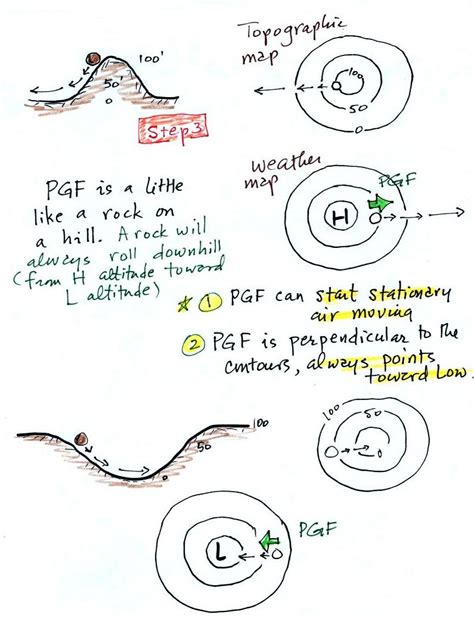 Topographic
map
100'
50'
0
Step 3
100
50
0
Weather
map
PGF
H
PGF is a little
like a rock on
a hill. A rock will
always roll downhill
(from H altitude toward
L altitude)
① PGF can start stationary
air moving
② PGF is perpendicular to the
contours, always points
toward Low.
100
50
0
100
50
0
L
PGF